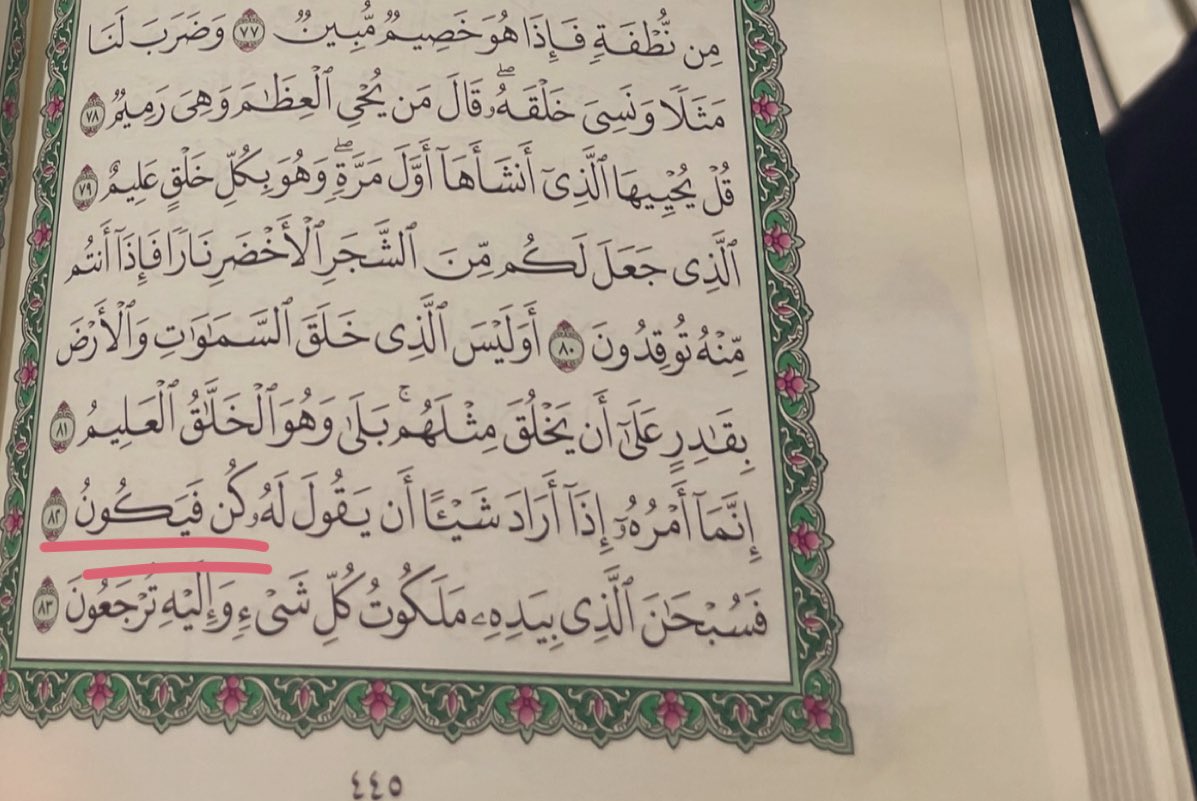 مِن نُّطْفَةٍ فَإِذَا هُوَ خَصِيمٌ مُّبِينٌ ٧٧ وَضَرَبَ لَنَا
مَثَلًا وَنَسِىَ خَلْقَهُۥۖ قَالَ مَن يُحْىِ ٱلْعِظَٰمَ وَهِىَ رَمِيمٌ ٧٨
قُلْ يُحْيِيهَا ٱلَّذِىٓ أَنشَأَهَآ أَوَّلَ مَرَّةٍۖ وَهُوَ بِكُلِّ خَلْقٍ عَلِيمٌ ٧٩
ٱلَّذِى جَعَلَ لَكُم مِّنَ ٱلشَّجَرِ ٱلْأَخْضَرِ نَارًا فَإِذَآ أَنتُم
مِّنْهُ تُوقِدُونَ ٨٠ أَوَلَيْسَ ٱلَّذِى خَلَقَ ٱلسَّمَٰوَٰتِ وَٱلْأَرْضَ
بِقَٰدِرٍ عَلَىٰٓ أَن يَخْلُقَ مِثْلَهُمۚ بَلَىٰ وَهُوَ ٱلْخَلَّٰقُ ٱلْعَلِيمُ ٨١
إِنَّمَآ أَمْرُهُۥٓ إِذَآ أَرَادَ شَيْـًٔا أَن يَقُولَ لَهُۥ كُن فَيَكُونُ ٨٢
فَسُبْحَٰنَ ٱلَّذِى بِيَدِهِۦ مَلَكُوتُ كُلِّ شَىْءٍ وَإِلَيْهِ تُرْجَعُونَ ٨٣
٤٤٥